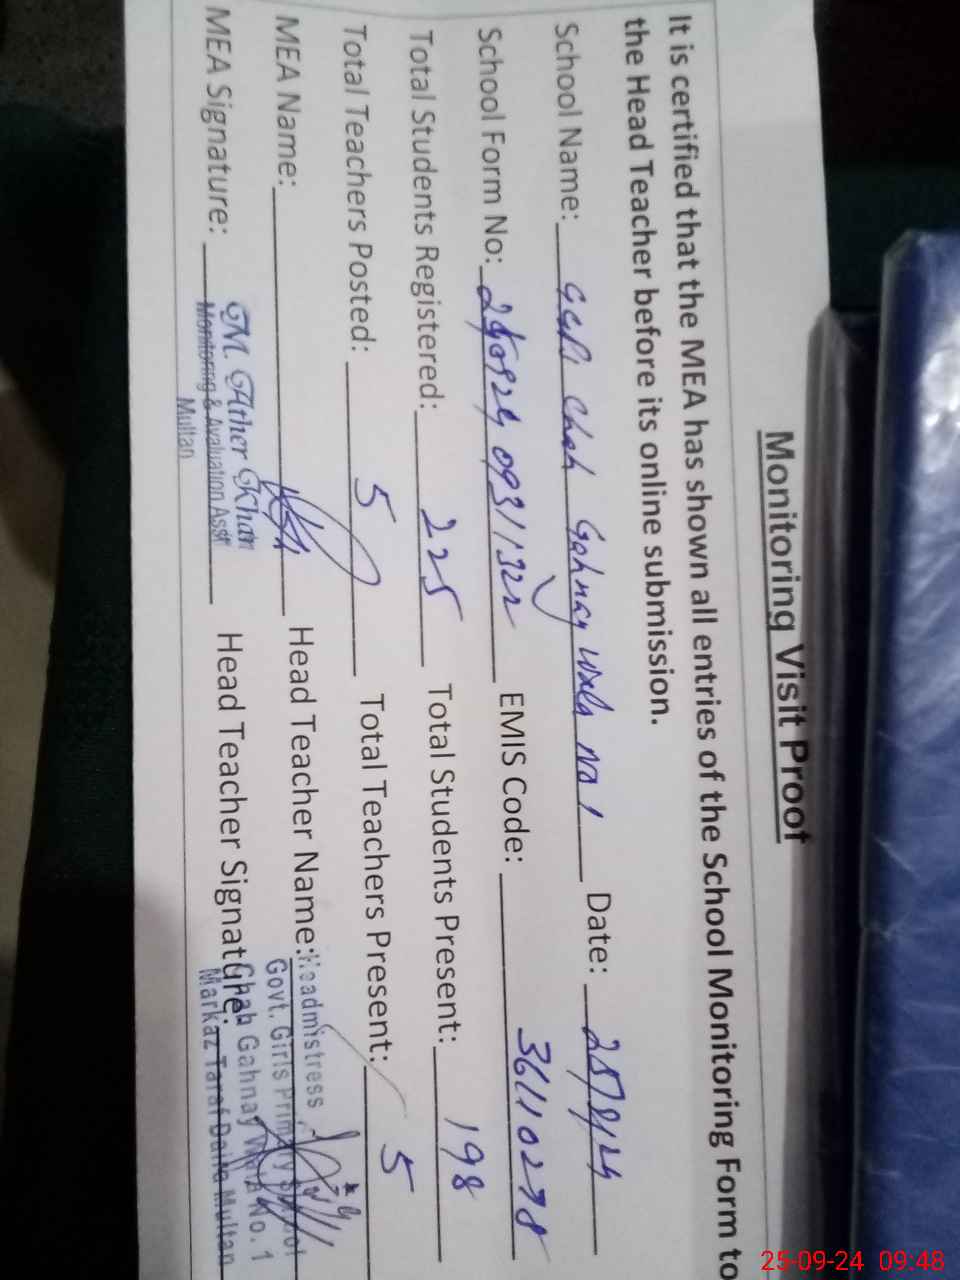 Monitoring Visit Proof
It is certified that the MEA has shown all entries of the School Monitoring Form to
the Head Teacher before its online submission.
School Name: GGPS Chah Gahnay Wala No 1 Date: 25/9/24
School Form No: 240924 0931322 EMIS Code: 36110278
Total Students Registered: 225 Total Students Present: 198
Total Teachers Posted: 5 Total Teachers Present: 5
MEA Name: Head Teacher Name: Headmistress
Govt. Girls Primary School
MEA Signature: M. Ather Khan Head Teacher Signature: Chah Gahnay Wala No. 1
Monitoring & Avaluation Asstt Markaz Taraf Daira Multan
Multan
25-09-24 09:48